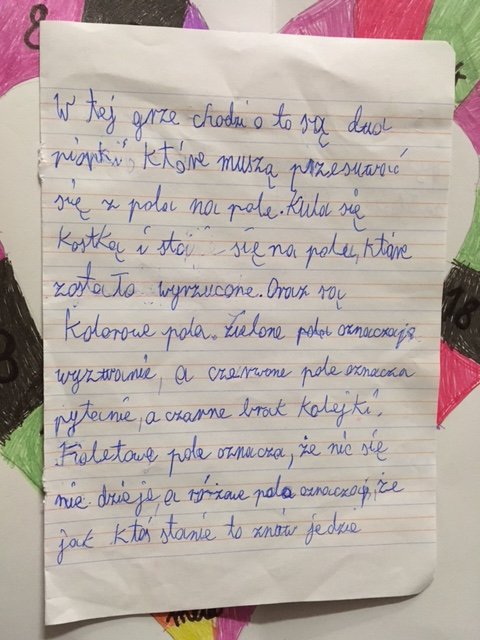 8
W tej grze chodzi o to są dwa
pionki, które muszą przesuwać
się z pola na pole. Kula się
kostką i stoi się na pole, które
zostało wyrzucone. Oraz są
kolorowe pola. Zielone pola oznaczają
wyzwanie, a czerwone pole oznacza
pytanie, a czarne brak kolejki.
Fioletowe pole oznacza, że nic się
nie dzieje, a różowe pola oznaczają, że
jak ktoś stanie to znów jedzie
18
8
meta